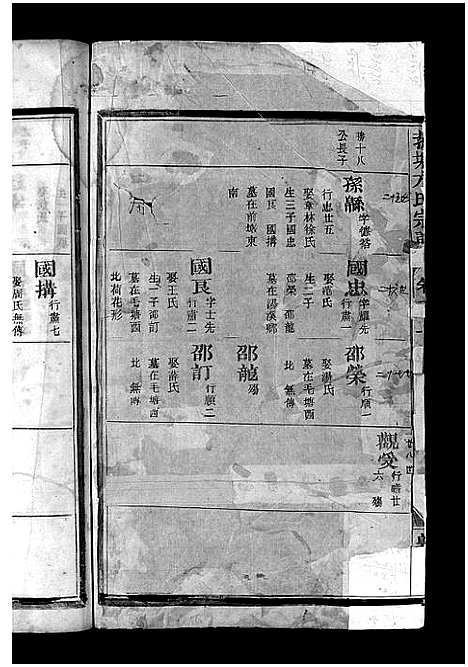 方氏宗譜
塘十八
公長子
孫縣 字德裕
行忠廿五
娶章林徐氏
生三子國忠
國良 國搆
墓在前塘東
南
國忠 字雄先
行肅一
娶范氏
生二子
邵榮 邵龍
墓在湯溪
國良 字士先
行肅二
娶王氏
生一子邵訂
墓在毛塘西
北荷花形
國搆 行肅七
娶周氏無傳
邵榮 行順一
娶湯氏
墓在毛塘西
北 無傳
邵龍 殤
邵訂 行順二
娶薛氏
墓在毛塘西
北 無傳
廿八世
觀受 行瞻廿
六 殤